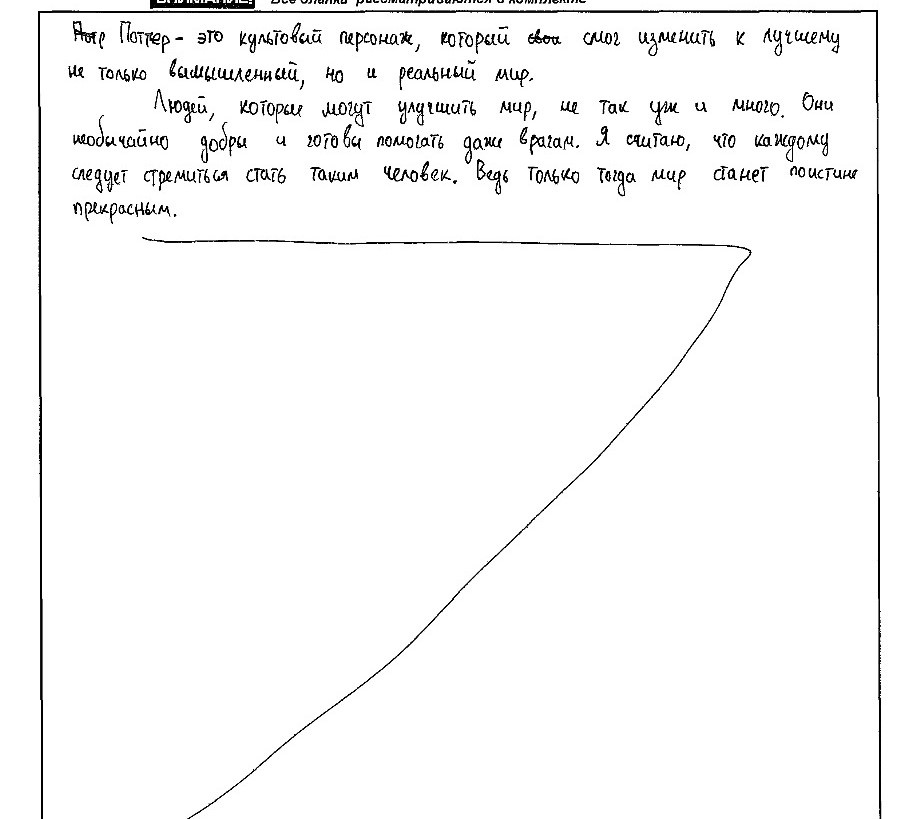 Все бланки рассматриваются в комплекте
Поттер - это культовый персонаж, который смог изменить к лучшему
не только вымышленный, но и реальный мир.
Людей, которые могут улучшить мир, не так уж и много. Они
необычайно добры и готовы помогать даже врагам. Я считаю, что каждому
следует стремиться стать таким человек. Ведь только тогда мир станет поистине
прекрасным.